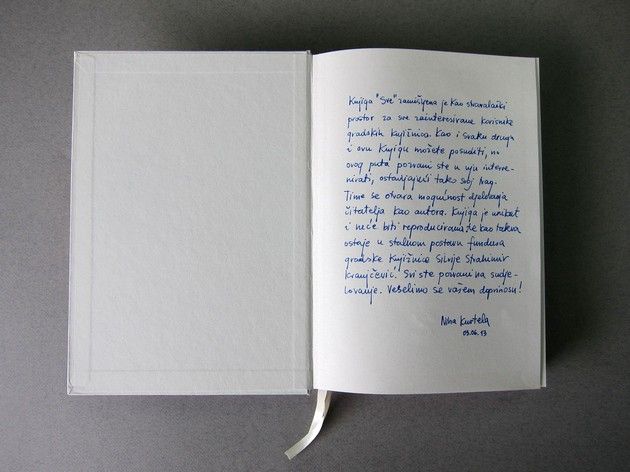 Knjiga "Sve" zamišljena je kao stvaralački
prostor za sve zainteresirane korisnike
gradskih knjižnica. Kao i svaku drugu
i ovu knjigu možete posuditi, no
ovog puta pozvani ste u nju interve-
nirati, ostavljajući tako svoj trag.
Time se otvara mogućnost djelovanja
čitatelja kao autora. Knjiga je unikat
i neće biti reproducirana, te kao takva
ostaje u stalnom postavu fundusa
gradske knjižnice Silvije Strahimir
Kranjčević. Svi ste pozvani na sudje-
lovanje. Veselimo se vašem doprinosu!
Nina Kurtela
03.06.13